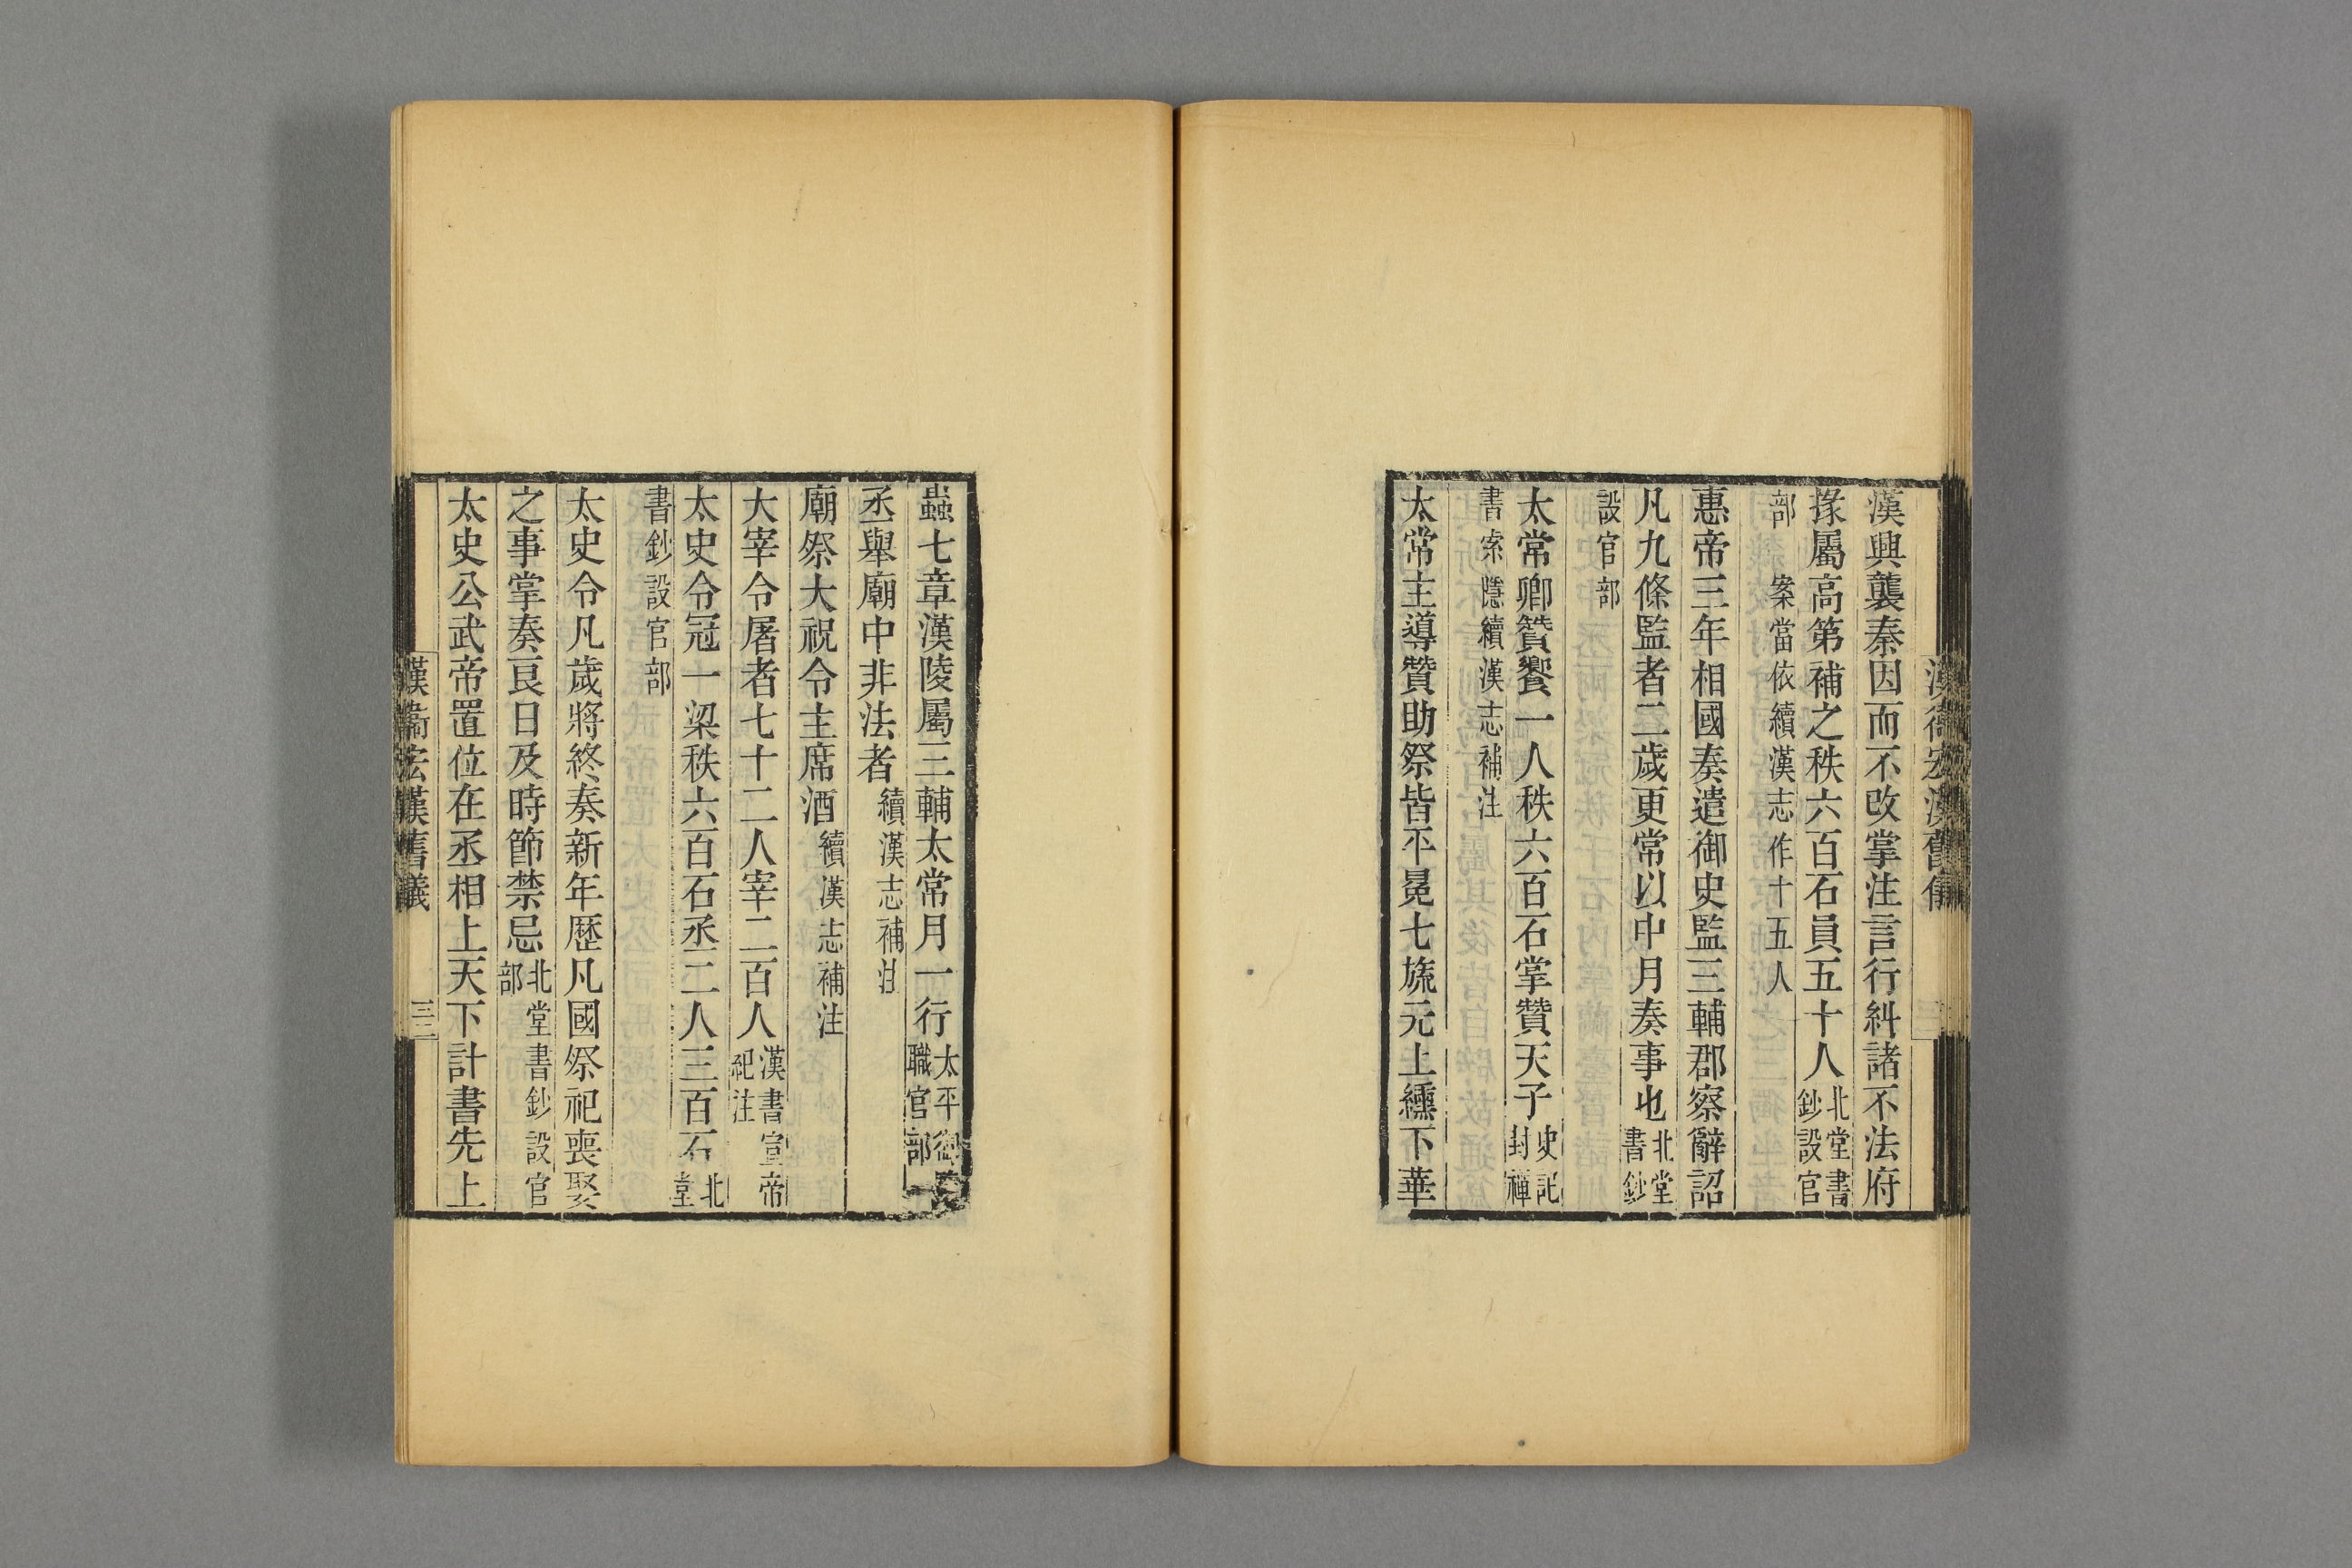 漢興襲秦因而不改掌注言行糾諸不法府
掾屬高第補之秩六百石員五十人北堂書鈔設官
部案當依續漢志作十五人
惠帝三年相國奏遣御史監三輔郡察辭詔
凡九條監者二歲更常以中月奏事也北堂書鈔
設官部
太常卿贊饗一人秩六百石掌贊天子史記封禪
書索隱續漢志補注
太常主導贊助祭皆平冕七旒元上纁下華
蟲七章漢陵屬三輔太常月一行太平御職官部
丞舉廟中非法者續漢志補注
廟祭大祝令主席酒續漢志補注
大宰令屠者七十二人宰二百人漢書宣帝紀注
太史令冠一梁秩六百石丞二人三百石北堂
書鈔設官部
太史令凡歲將終奏新年歷凡國祭祀喪娶
之事掌奏良日及時節禁忌北堂書鈔設官部
太史公武帝置位在丞相上天下計書先上
漢衞宏漢舊儀
三